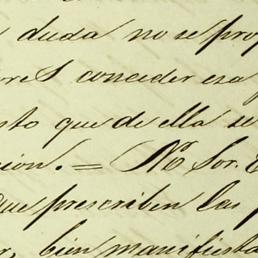 duda no se prop
ores conceder esa
sto que de ella se
cion. = No Sor. E
que prescriben las p
r, bien manifiesta